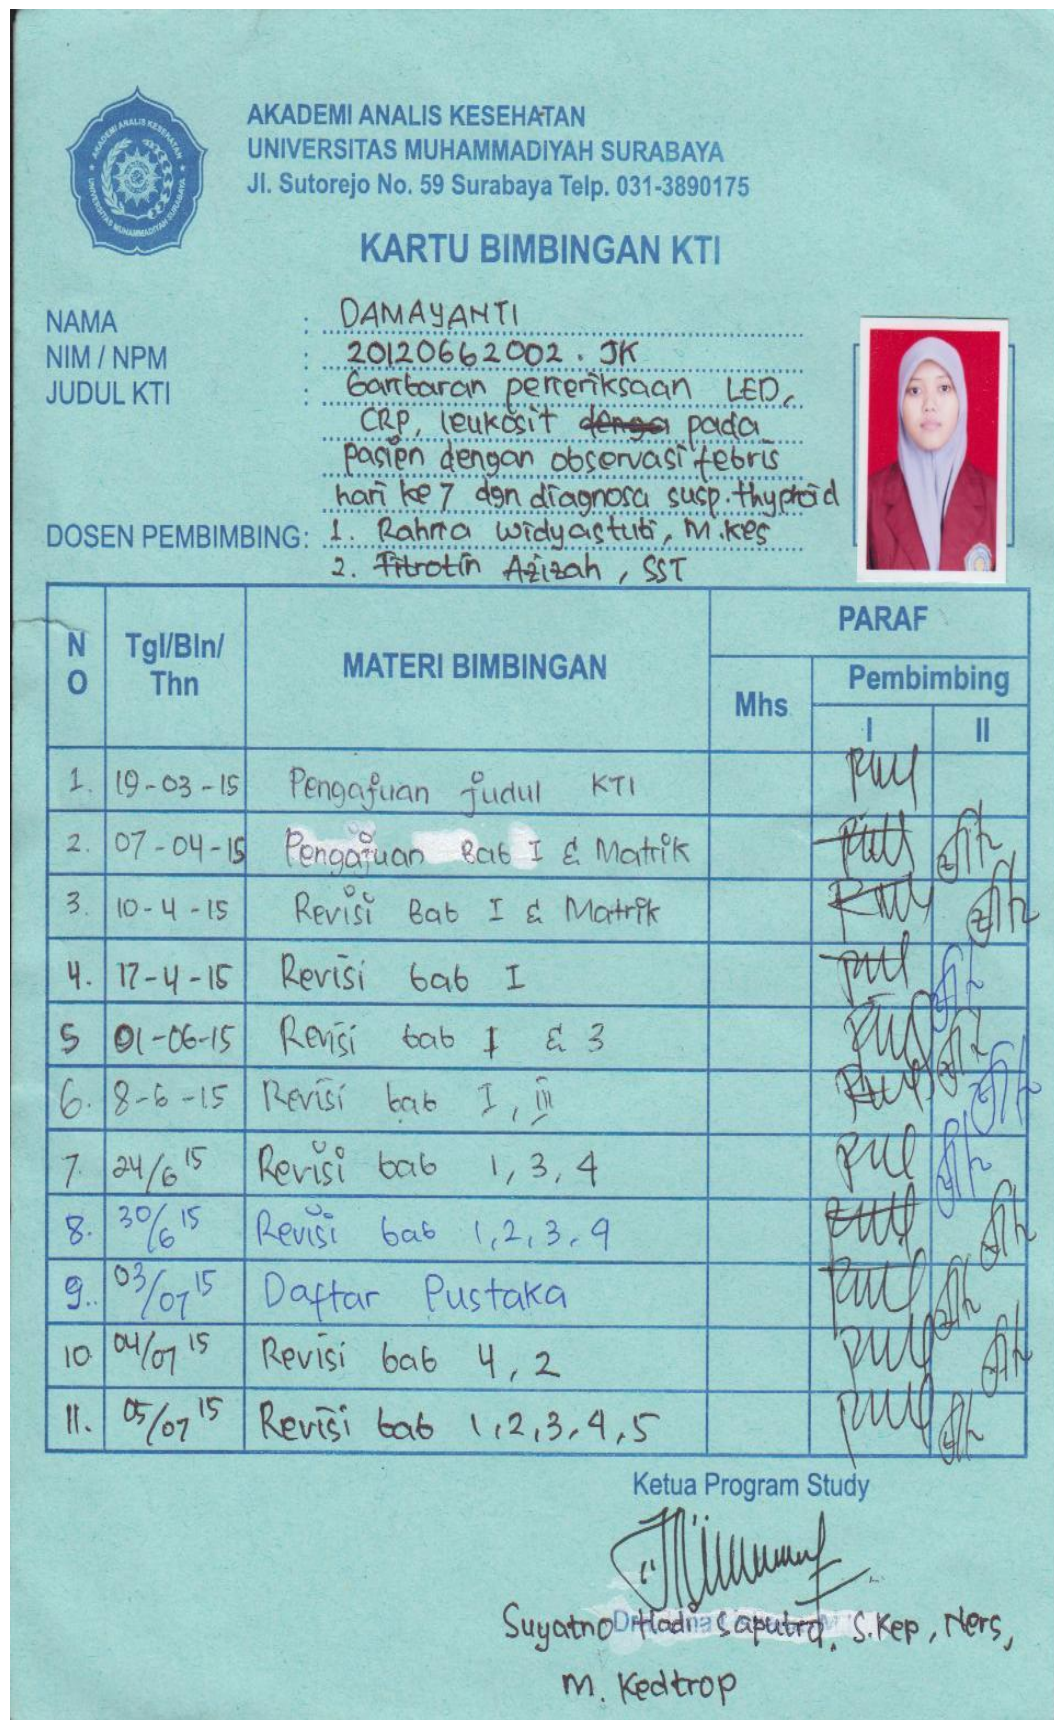 AKADEMI ANALIS KESEHATAN
UNIVERSITAS MUHAMMADIYAH SURABAYA
Jl. Sutorejo No. 59 Surabaya Telp. 031-3890175
KARTU BIMBINGAN KTI
NAMA : DAMAYANTI
NIM / NPM : 20120662002. JK
JUDUL KTI : Gambaran pemeriksaan LED,
CRP, leukosit pada
pasien dengan observasi febris
hari ke 7 dgn diagnosa susp. thyphoid
DOSEN PEMBIMBING: 1. Rahma Widyastuti, M.Kes
2. Fitrotin Azizah, SST
NO Tgl/Bln/Thn MATERI BIMBINGAN PARAF
Mhs Pembimbing
I II
1. 19-03-15 Pengajuan judul KTI
2. 07-04-15 Pengajuan Bab I & Matrik
3. 10-4-15 Revisi Bab I & Matrik
4. 17-4-15 Revisi bab I
5 01-06-15 Revisi bab I & 3
6. 8-6-15 Revisi bab I, III
7. 24/6 15 Revisi bab 1, 3, 4
8. 30/6 15 Revisi bab 1,2,3,4
9. 03/07 15 Daftar Pustaka
10 04/07 15 Revisi bab 4, 2
11. 05/07 15 Revisi bab 1,2,3,4,5
Ketua Program Study
Suyatno Hadi Saputro, S.Kep, Ners,
M. Kedtrop